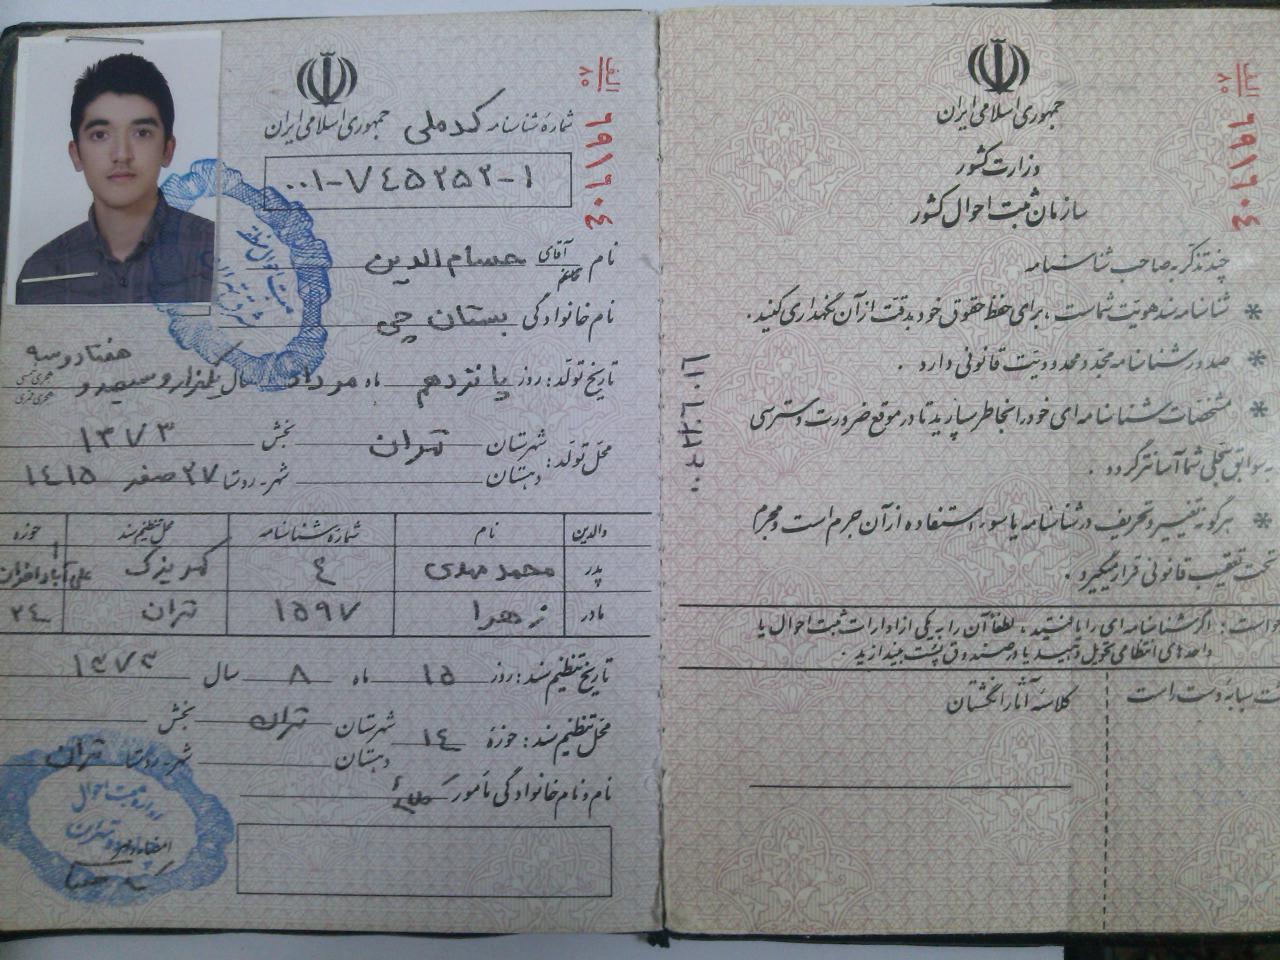 جمهوری اسلامی ایران
وزارت کشور
سازمان ثبت احوال کشور
الف
۸۰
۶۹۱۶۰۴
چند تذکر به صاحب شناسنامه
* شناسنامه سند هویت شماست ، برای حفظ حقوق خود بدقت از آن نگهداری کنید .
* صدور شناسنامه مجدد محدودیت قانونی دارد .
* مشخصات شناسنامه ای خود را بخاطر بسپارید تا در موقع ضرورت دسترسی
به سوابق سجلی شما آسانتر گردد .
* هرگونه تغییر و تحریف در شناسنامه یا سوء استفاده از آن جرم است و مجرم
تحت تعقیب قانونی قرار میگیرد .
اگر شناسنامه ای را یافتید ، لطفاً آن را به یکی از ادارات ثبت احوال یا
واحدهای انتظامی تحویل دهید یا در صندوق پست بیندازید .
کلاسه آثار انگشتان
سبابه دست راست
الف
۸۰
۶۹۱۶۰۴
جمهوری اسلامی ایران
شماره شناسنامه کد ملی
۰۰۱-۷۴۵۲۵۲-۱
نام آقای خانم حسام الدین
نام خانوادگی بستان چی
تاریخ تولد : روز پانزدهم ماه مرداد سال یکهزار و سیصد و هفتاد و سه
هجری شمسی
هجری قمری
محل تولد : شهرستان تهران بخش ۱۳۷۳
دهستان شهر - روستا ۲۷ صفر ۱۴۱۵
والدین نام شماره شناسنامه محل تنظیم سند حوزه
پدر محمد مهدی ۴ کهریزک
مادر زهرا ۱۵۹۷ تهران ۲۴
تاریخ تنظیم سند : روز ۱۵ ماه ۸ سال ۱۳۷۳
محل تنظیم سند : حوزه ۱۴ شهرستان تهران بخش
دهستان شهر - روستا تهران
نام و نام خانوادگی مأمور